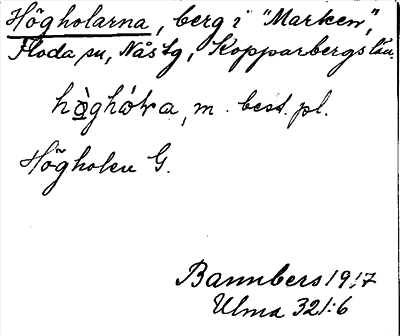 Högholarna, berg i "Marken",
Floda sn, Nås tg, Kopparbergs län.
m. best. pl.
Högholen G.
Bannbers 1917
Ulma 321:6